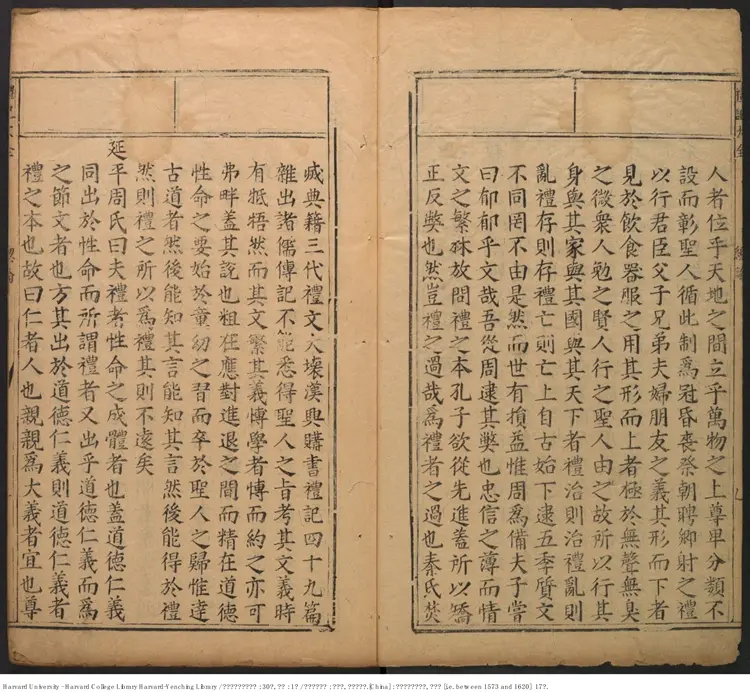 人者位乎天地之間立乎萬物之上尊卑分類不
設而彰聖人循此制爲冠昏喪祭朝聘鄉射之禮
以行君臣父子兄弟夫婦朋友之義其形而下者
見於飲食器服之用其形而上者極於無聲無臭
之微衆人勉之賢人行之聖人由之故所以行其
身與其家與其國與其天下者禮治則治禮亂則
亂禮存則存禮亡則亡上自古始下逮五季質文
不同罔不由是然而世有損益惟周爲備夫子嘗
曰郁郁乎文哉吾從周逮其獘也忠信之薄而情
文之繁林放問禮之本孔子欲從先進蓋所以矯
正反獘也然豈禮之過哉爲禮者之過也秦氏焚
烕典籍三代禮文大壞漢興購書禮記四十九篇
雜出諸儒傳記不能悉得聖人之旨考其文義時
有牴牾然而其文繁其義博學者博而約之亦可
弗畔蓋其說也粗在應對進退之間而精在道德
性命之要始於童幼之習而卒於聖人之歸惟達
古道者然後能知其言能知其言然後能得於禮
然則禮之所以爲禮其則不遠矣
延平周氏曰夫禮者性命之成體者也蓋道德仁義
同出於性命而所謂禮者又出乎道德仁義而爲
之節文者也方其出於道德仁義則道德仁義者
禮之本也故曰仁者人也親親爲大義者宜也尊
Harvard University - Harvard College Library Harvard-Yenching Library / ????????? : 30?, ?? : 1? / ?????? ; ???, ?????. [China] : ????????, ??? [i.e. between 1573 and 1620] 17?.